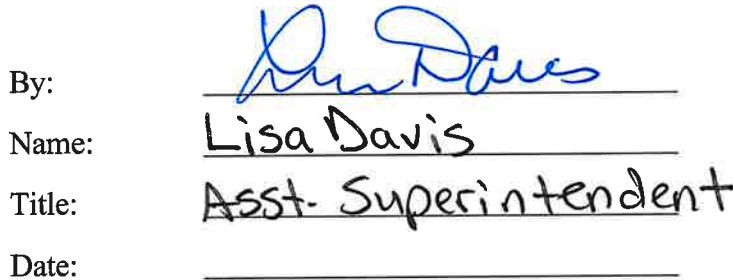 By: Lisa Davis
Name: Lisa Davis
Title: Asst. Superintendent
Date: